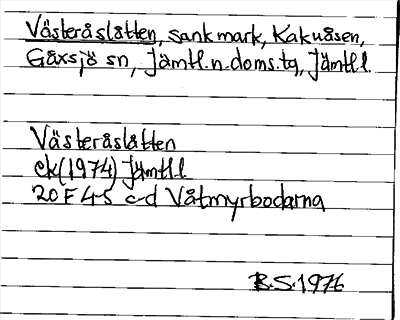 Västeråslåtten, sank mark, Kakuåsen,
Gåxsjö sn, Jämtl.n.doms.tg, Jämtl.l
Västeråslåtten
ek(1974) Jämtl.l
20 F 4-5 c-d Våtmyrbodarna
B.S.1976